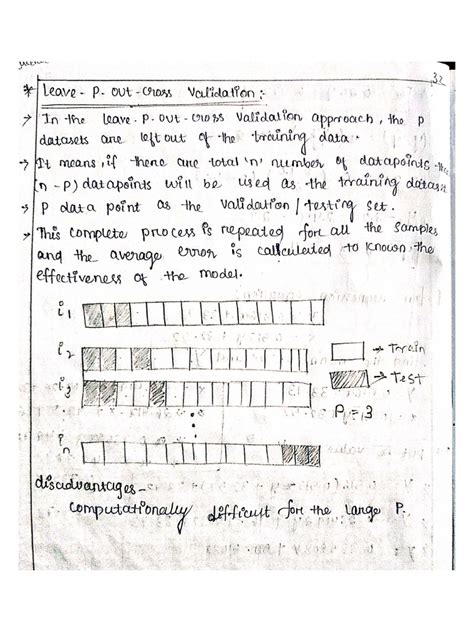 32
* Leave - P - out - cross validation :-
→ In the leave - P - out - cross validation approach, the p
datasets are left out of the training data.
→ It means, if there are total 'n' number of datapoints the
(n - P) datapoints will be used as the training dataset
→ P data point as the validation / testing set.
→ This complete process is repeated for all the samples
and the average error is callculated to known the
effectiveness of the model.
i1
i2 → Train
i3 → Test
P = 3
n
disadvantages -
computationally difficult for the large P.